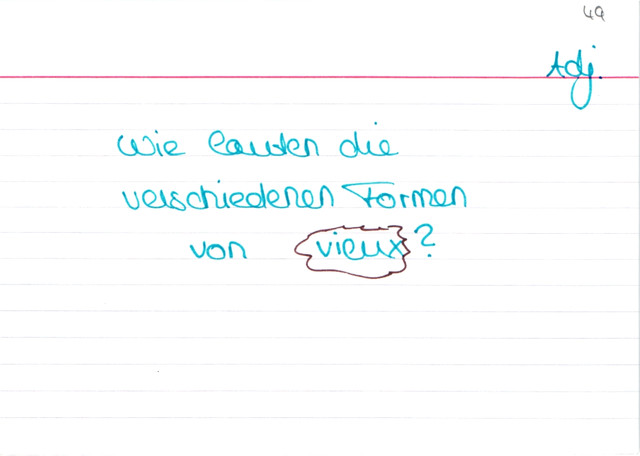 49
Adj.
Wie lauten die
verschiedenen Formen
von vieux?